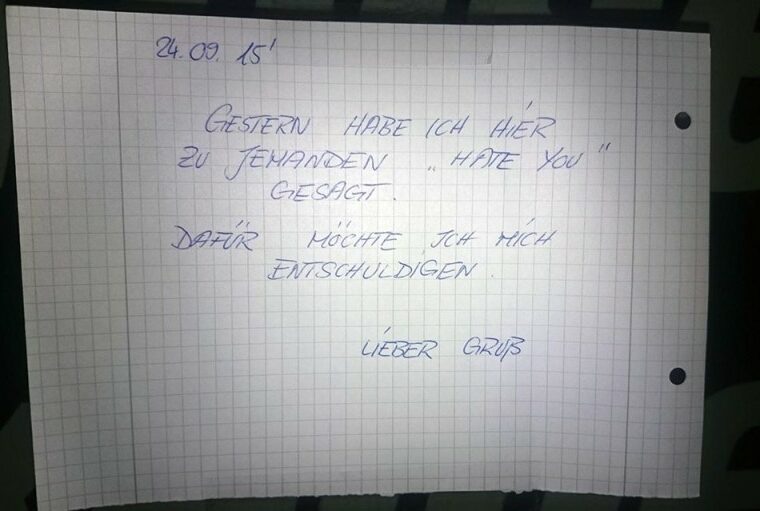 24.09. 15'
GESTERN HABE ICH HIER
ZU JEMANDEN „HATE YOU"
GESAGT.
DAFÜR MÖCHTE ICH MICH
ENTSCHULDIGEN.
LIEBER GRUß